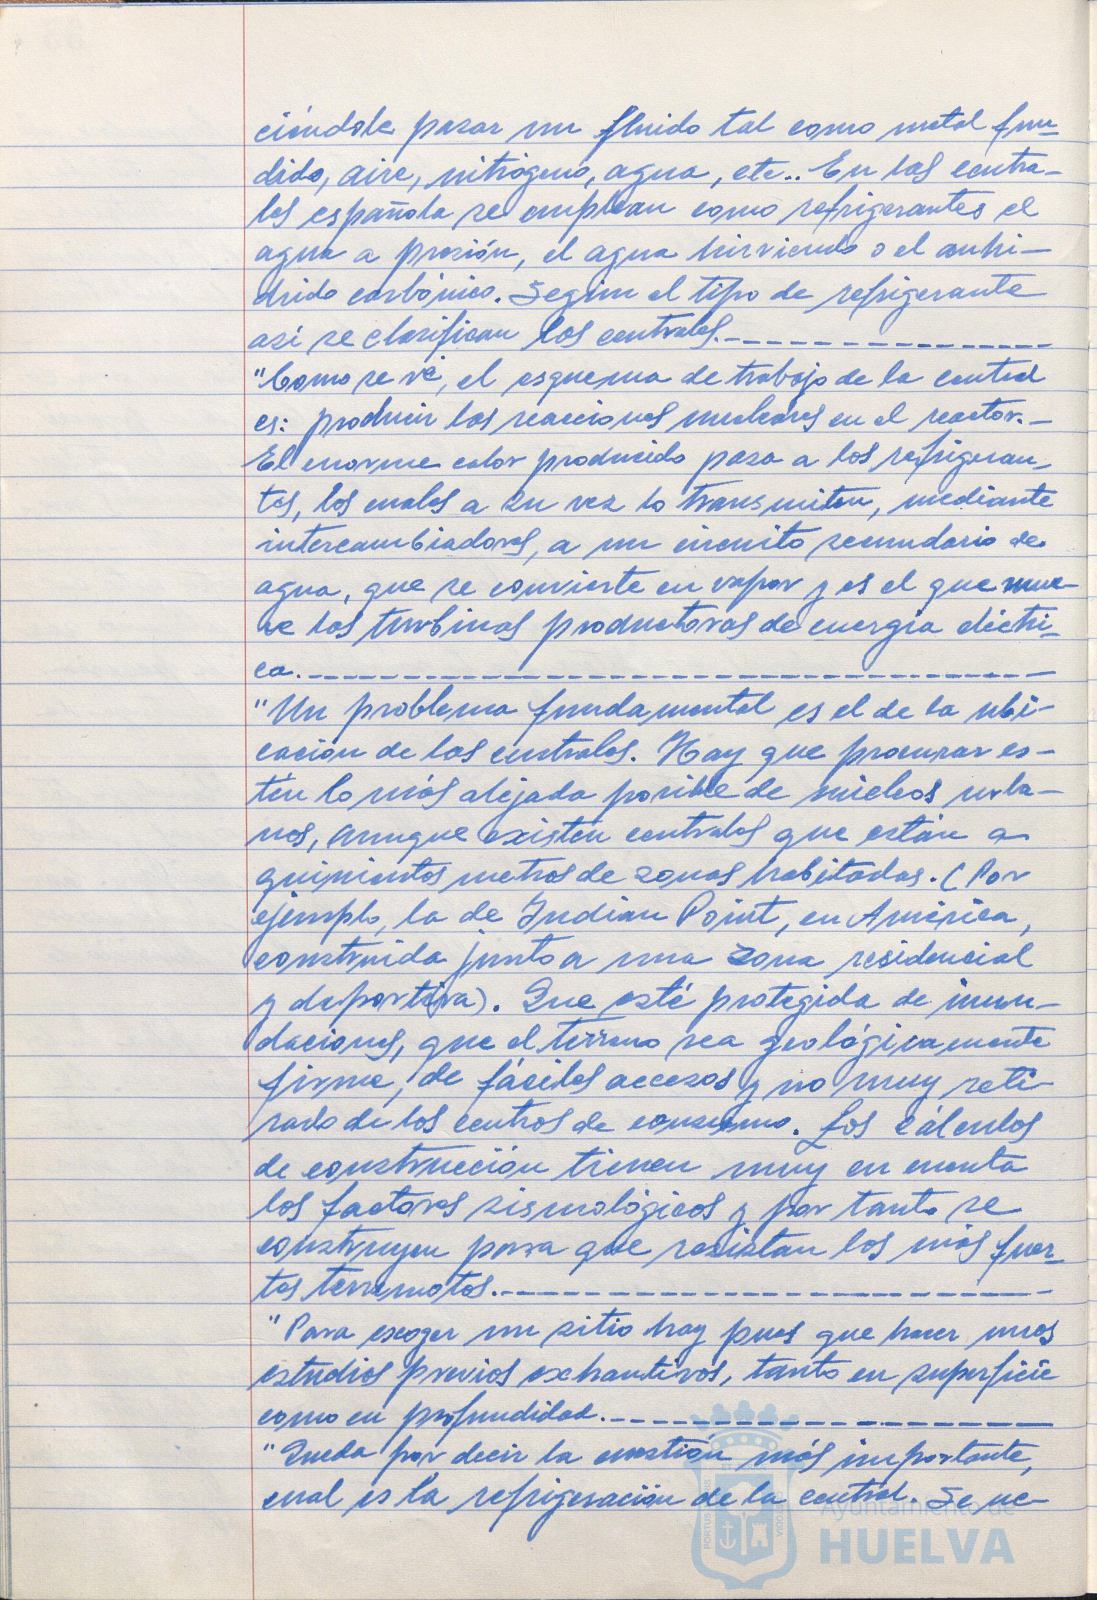 ciéndole pasar un fluido tal como metal fun-
dido, aire, nitrógeno, agua, etc.. En las centra-
les española se emplean como refrigerantes el
agua a presión, el agua hirviendo o el anhi-
drido carbónico. Según el tipo de refrigerante
así se clasifican las centrales.
"Como se vé, el esquema de trabajo de la central
es: producir las reacciones nucleares en el reactor.-
El enorme calor producido pasa a los refrigeran-
tes, los cuales a su vez lo transmiten, mediante
intercambiadores, a un circuito secundario de
agua, que se convierte en vapor y es el que mue-
ve las turbinas productoras de energia eléctri-
ca.
"Un problema fundamental es el de la ubi-
cación de las centrales. Hay que procurar es-
tén lo más alejada posible de núcleos urba-
nos, aunque existen centrales que están a
quinientos metros de zonas habitadas. (Por
ejemplo, la de Indian Point, en América,
construida junto a una zona residencial
y deportiva). Que esté protegida de inun-
daciones, que el terreno sea geológicamente
firme, de fáciles accesos y no muy reti-
rado de los centros de consumo. Los cálculos
de construcción tienen muy en cuenta
los factores sismológicos y por tanto se
construyen para que resistan los más fuer-
tes terremotos.
"Para escoger un sitio hay pues que hacer unos
estudios previos exhautivos, tanto en superficie
como en profundidad.
"Queda por decir la cuestión más importante,
cual es la refrigeración de la central. Se ne-
Ayuntamiento de
HUELVA